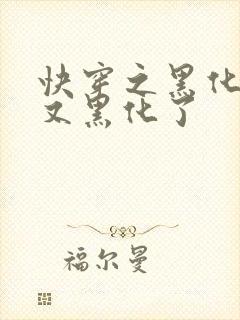 快穿之黑化
又黑化了
福尔曼